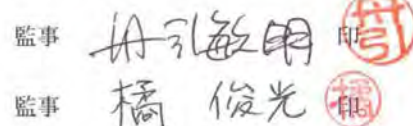 監事 丹引敏明 印
監事 橘 俊光 印